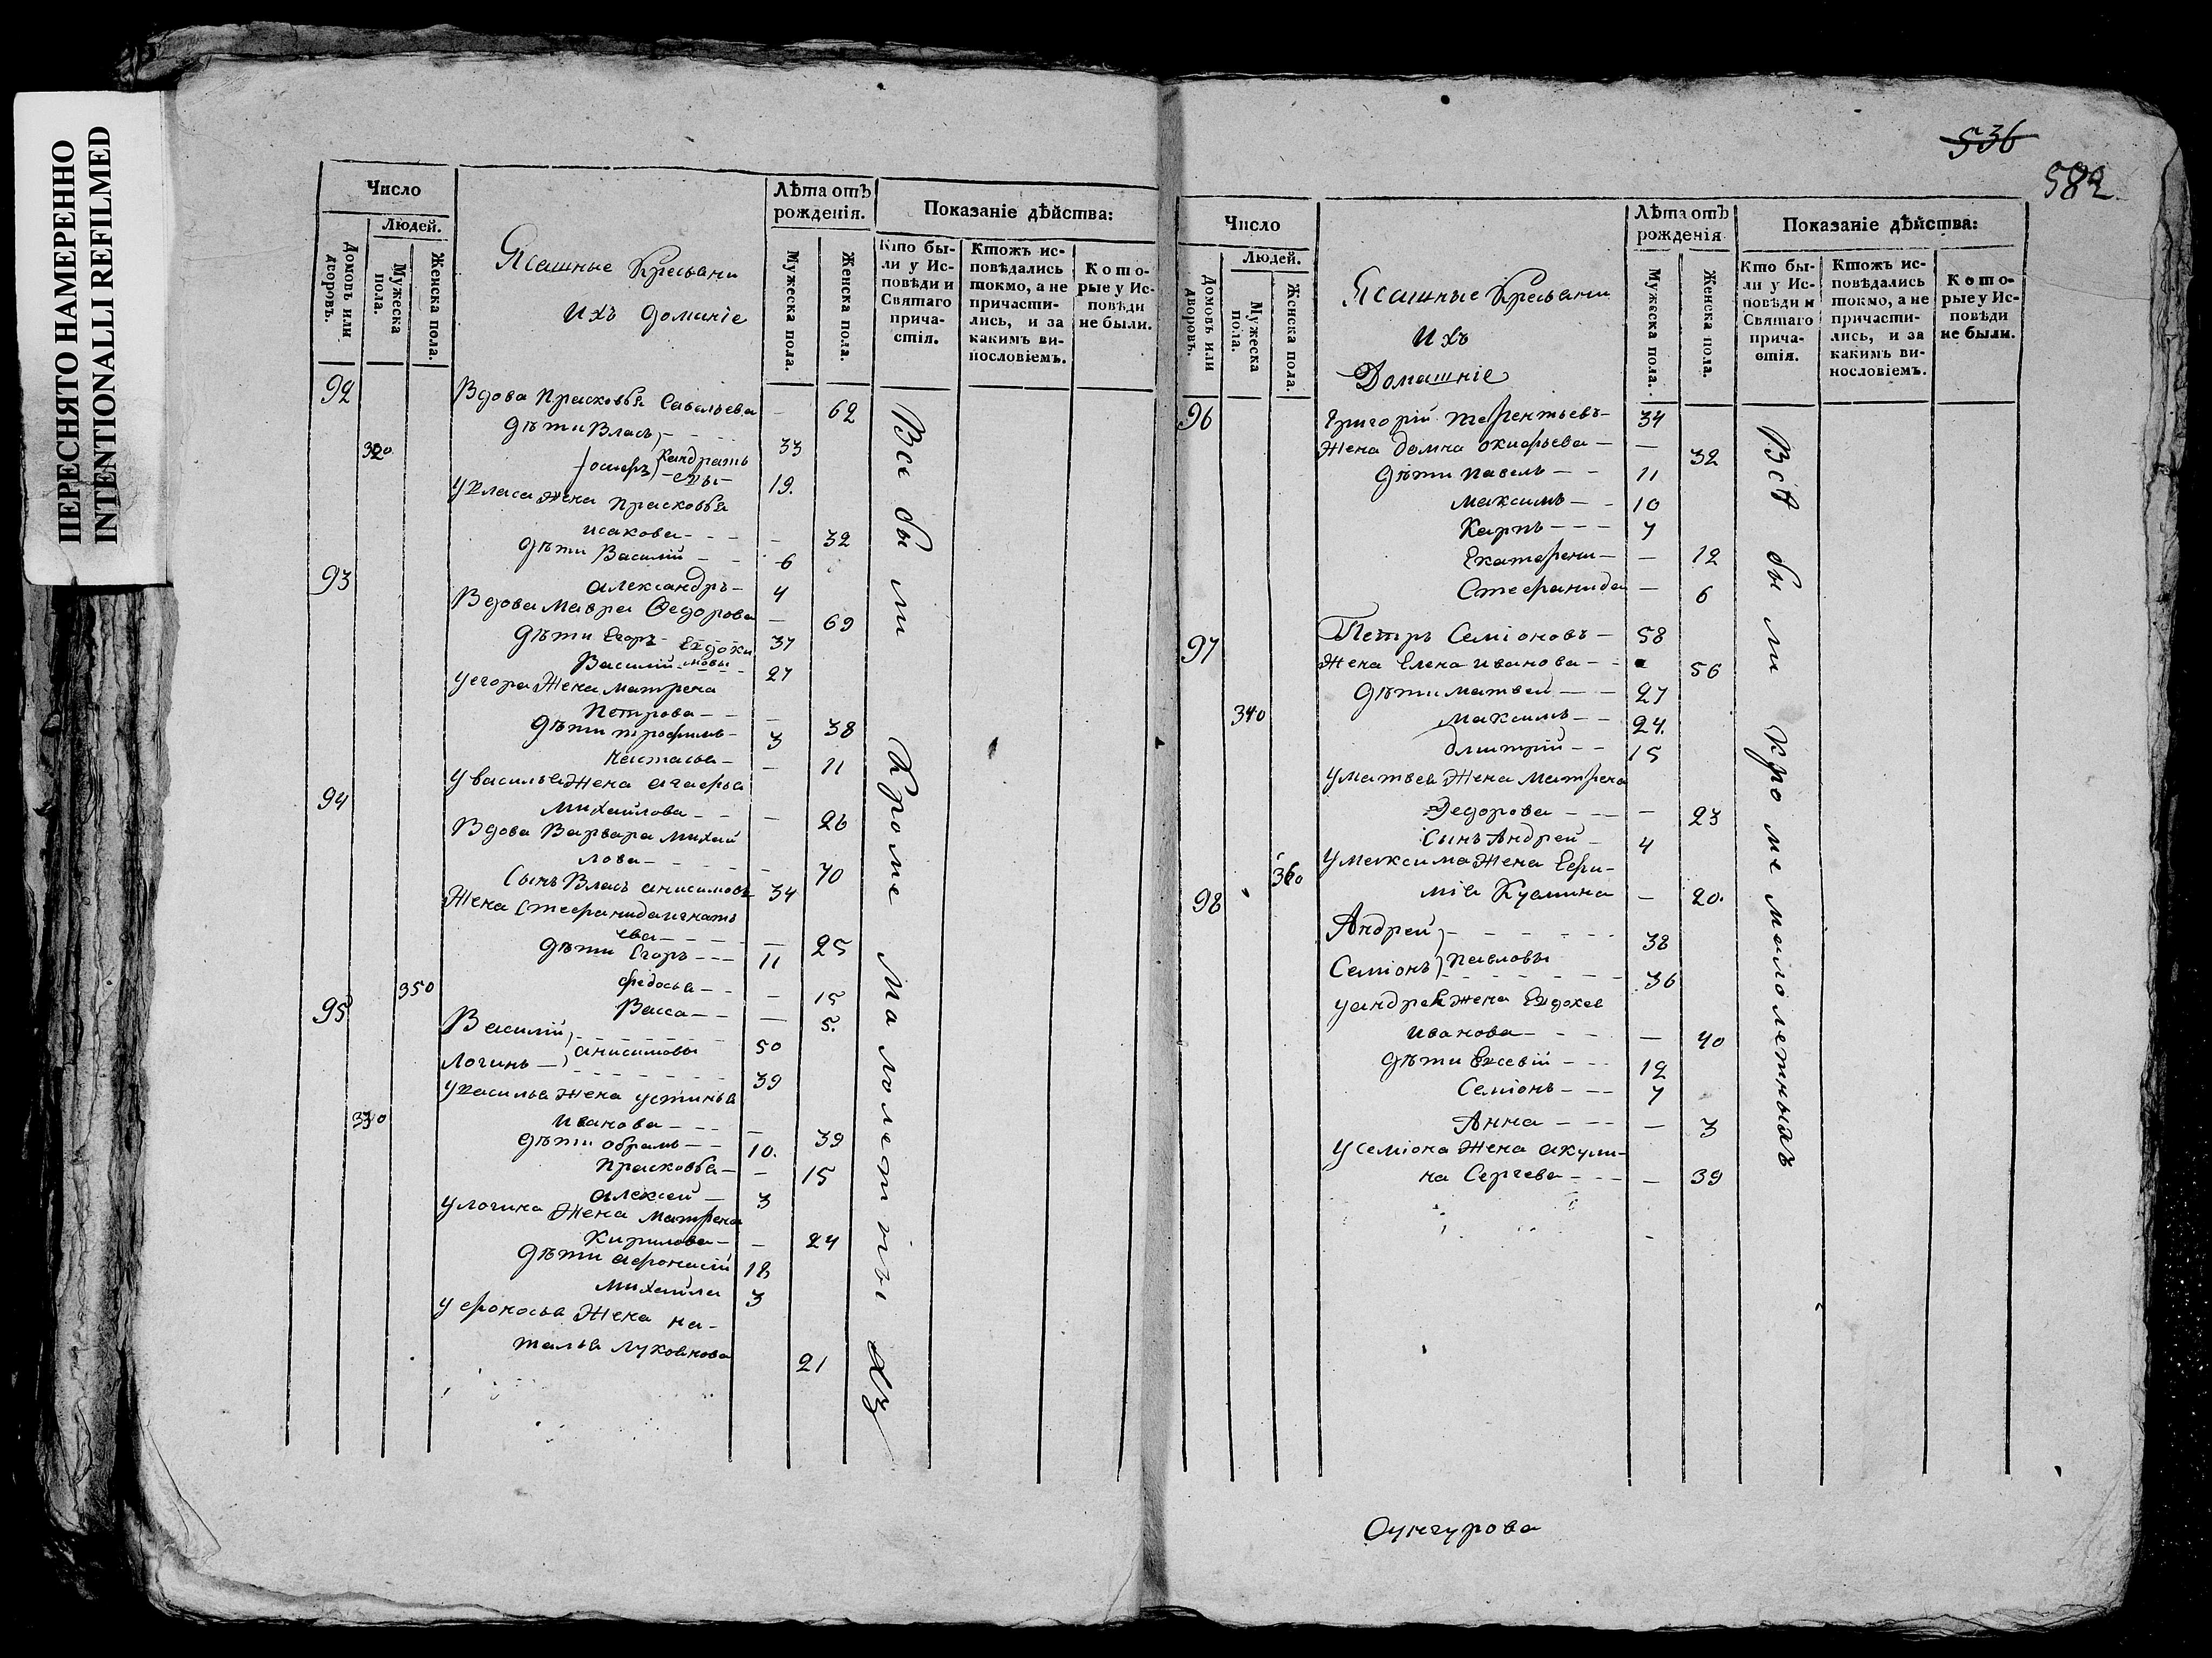 ПЕРЕСНЯТО НАМЕРЕННО
INTENTIONALLI REFILMED
Число
Людей.
Домовъ или дворовъ.
Мужеска пола.
Женска пола.
Ясашные Кресьяни
Ихъ доманіе
Лѣта отъ рожденія.
Мужеска пола.
Женска пола.
Показаніе дѣйства:
Кто бы-
ли у Ис-
повѣди и
Святаго
прича-
стія.
Ктожъ ис-
повѣдались
токмо, а не
причасти-
лись, и за
какимъ ви-
нословіемъ.
Кото-
рые у Ис-
повѣди
не были.
92 Вдова Прасковья Савельева — 62
Дѣти Власъ 33
320 Кандрать
евы 19.
У Власа Жена Прасковья
исакова — 32
Дѣти Василій 6
93 Александръ 4
Вдова Мавра Ѳедорова — 69
Дѣти Егоръ Евдоки 37
Василий мовы 27
У егора Жена Матрена
Петрова — 38
Дѣти трофимъ 3
Настасья — 11
У василья Жена агафья
94 Михайлова — 26
Вдова Варвара Михай
лова — 70
Сынъ Власъ анисимовъ 34
Жена Стефанида игнать
ева — 25
Дѣти Егоръ 11
350 федосья — 15
95 Васса — 5.
Василий 50
Логинъ анисимовы 39
У Василья Жена устинья
330 Иванова — 39
Дѣти обрамъ 10.
Прасковья — 15
алексей 3
У логина Жена Матрена
Кирилова — 24
Дѣти афонасій 18
Михайла 3
У афонасья Жена на-
талья Луковнова 21
Все были Кроме Малолетныхъ
536
582
Число
Людей.
Домовъ или дворовъ.
Мужеска пола.
Женска пола.
Ясашные Кресьяни
Ихъ
Домашніе
Лѣта отъ рожденія
Мужеска пола.
Женска пола.
Показаніе дѣйства:
Кто бы-
ли у Ис-
повѣди и
Святаго
прича-
стія.
Ктожъ ис-
повѣдались
токмо, а не
причасти-
лись, и за
какимъ ви-
нословіемъ.
Кото-
рые у Ис-
повѣди
не были.
96 Григорій терентьевъ 34
Жена домна — 32
Дѣти павелъ 11
максимъ 10
Карпъ 7
Екатерени — 12
Стефанида — 6
97 Петръ Семіоновъ 58
Жена Елена иванова 56
Дѣти матвей 27
340 максимъ 24.
дмитрій 15
У матвея Жена Матрена
Федорова — 23
Сынъ Андрей 4
У максима Жена Ефи-
360 мія Кузмина — 20.
98 Андрей 38
Семіонъ Павловы 36
У андрея Жена Евдокея
Иванова — 40
Дѣти Евсевій 12
Семіонъ 7
Анна — 3
У семіона Жена акули-
на Сергеева — 39
Всѣ были кроме малолетныхъ
Сунгурова